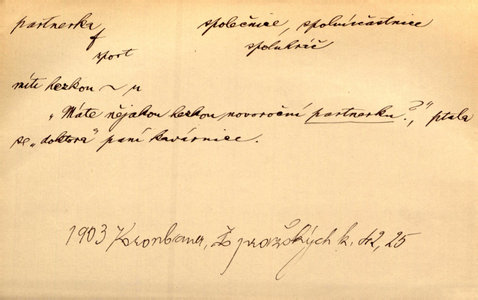 partnerka společnice, spoluúčastnice
f spoluhráč
sport
míti hezkou ~ u
„Máte nějakou hezkou novoroční partnerku?", ptala
se „doktora" paní kavárnice.
1903 Kronbauer, Z pražských k. 42, 25